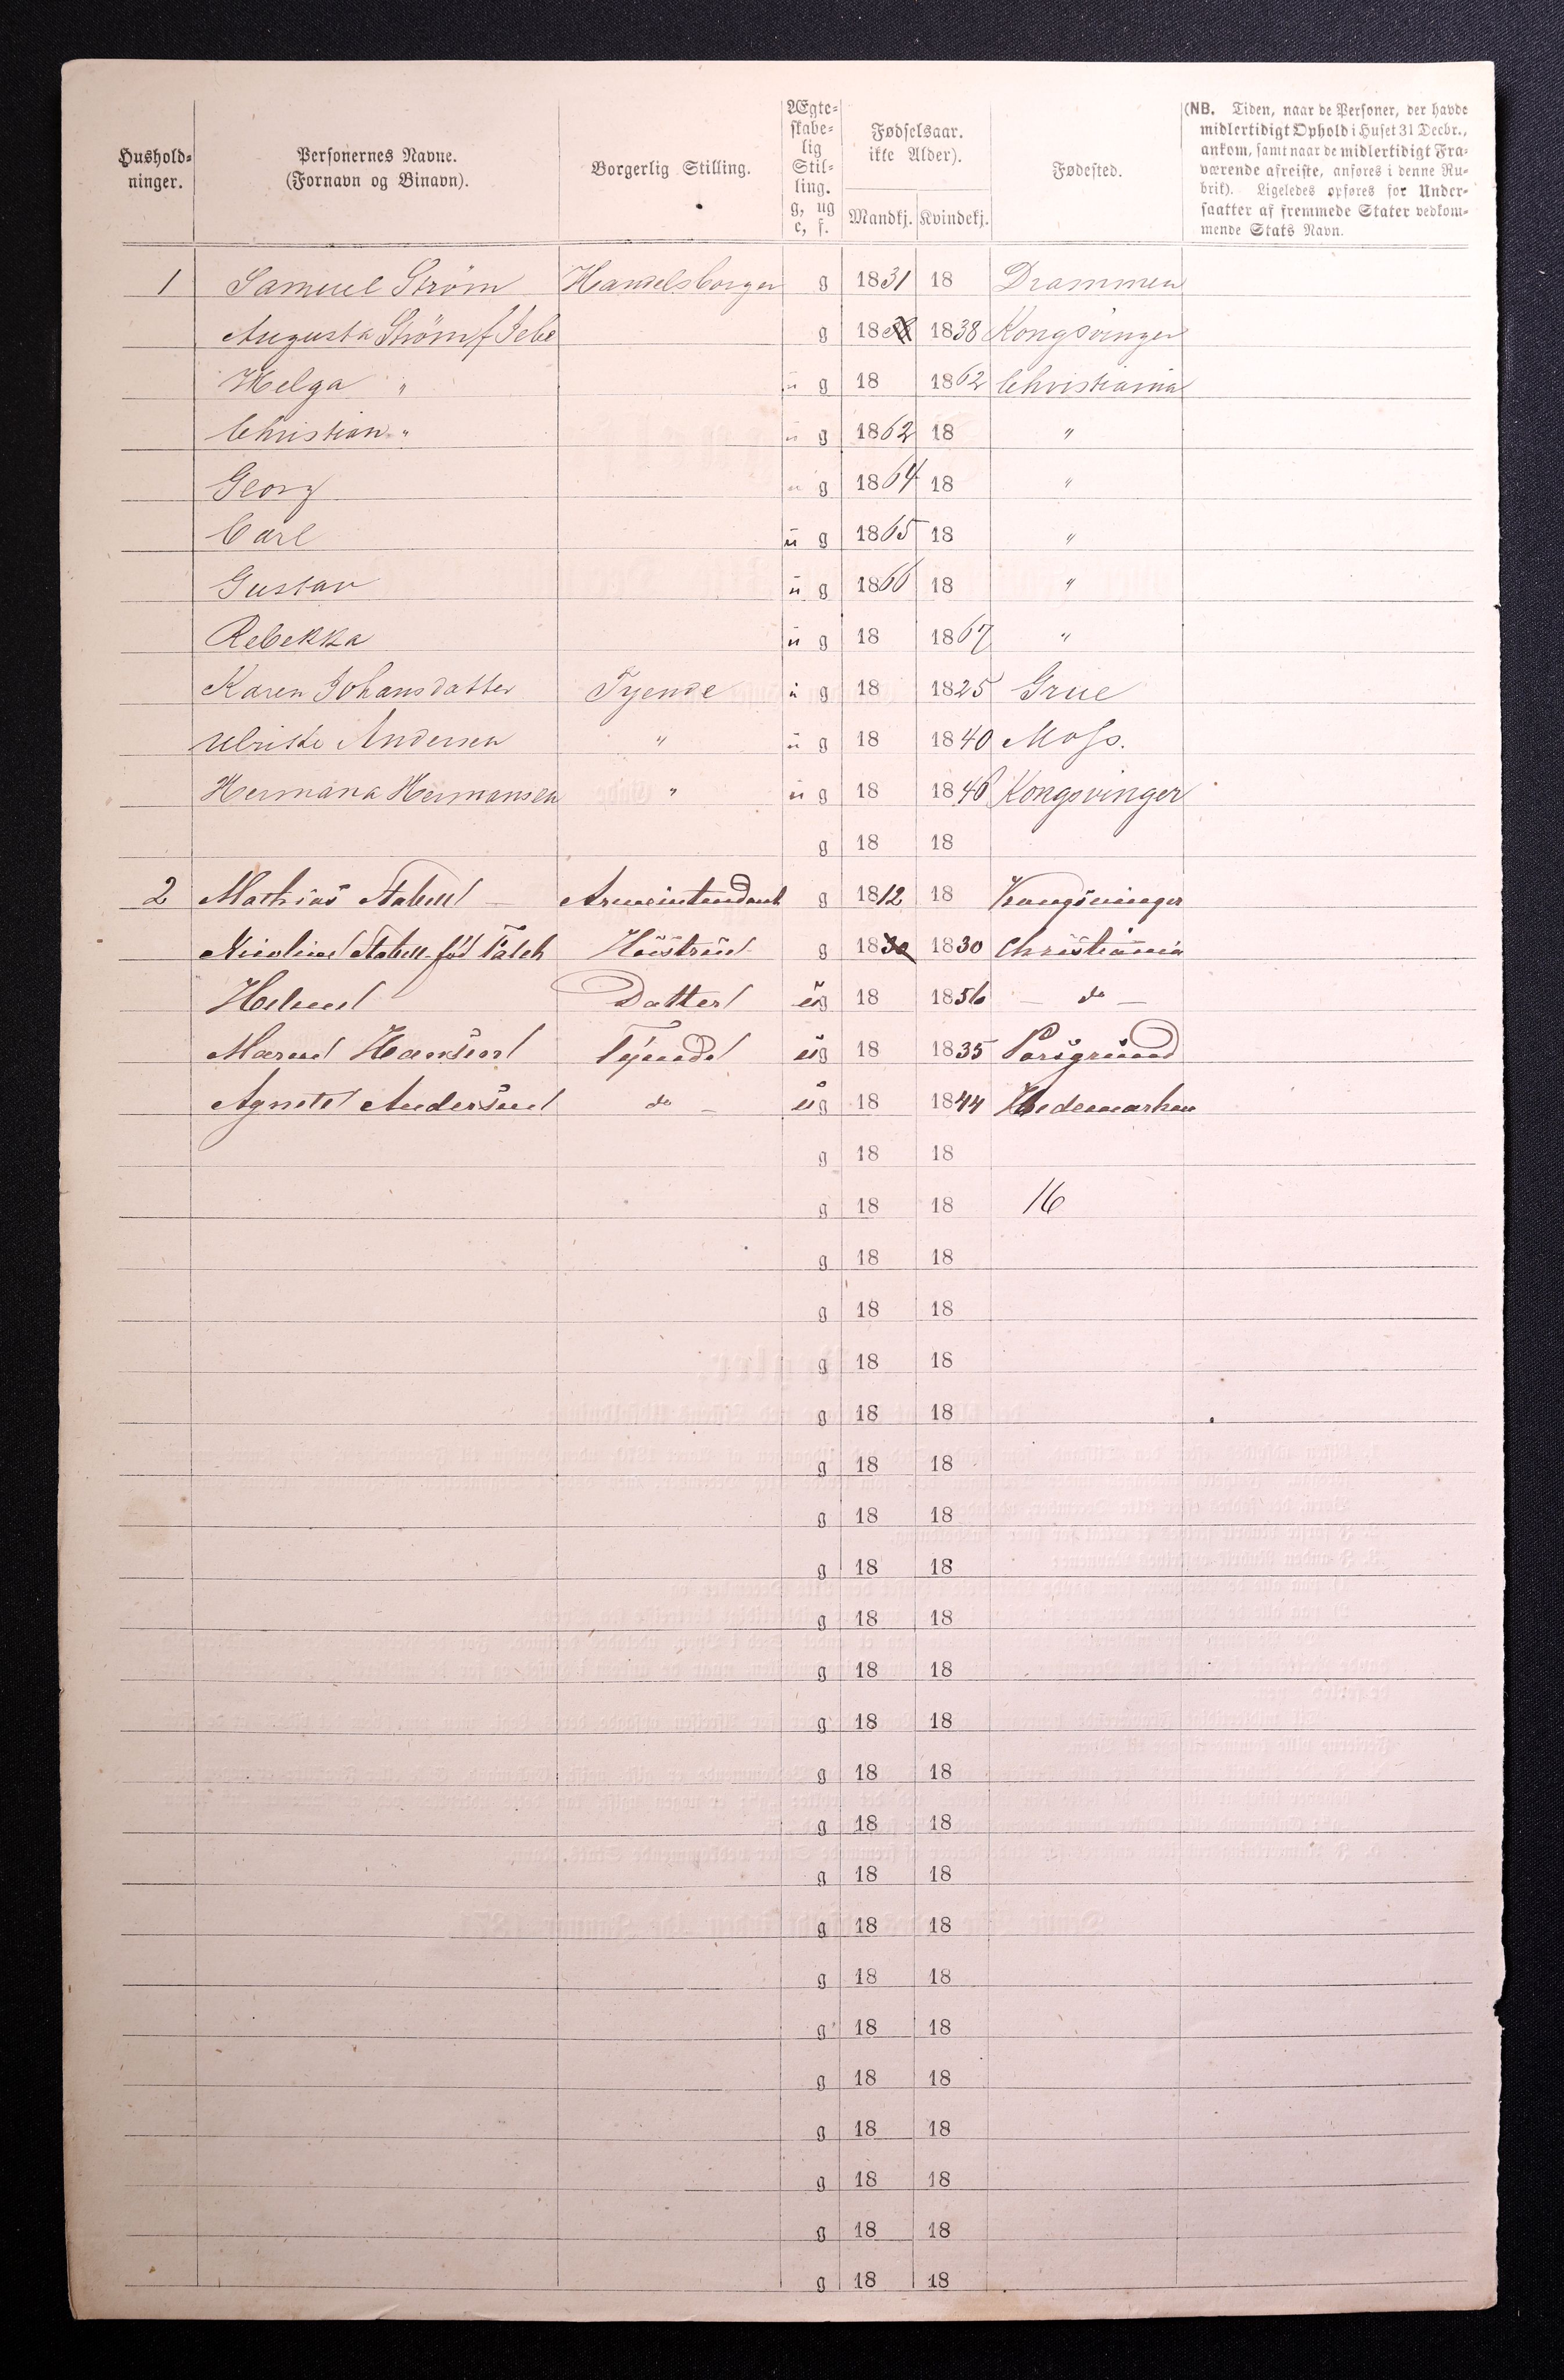 Hushold-
ninger.
Personernes Navne.
(Fornavn og Binavn).
Borgerlig Stilling.
Ægte-
skabe-
lig
Stil-
ling.
g, ug
e, f.
Fødselsaar.
ikke Alder).
Mandkj. Kvindekj.
Fødested.
(NB. Tiden, naar de Personer, der havde
midlertidigt Ophold i Huset 31 Decbr.,
ankom, samt naar de midlertidigt Fra-
værende afreiste, anføres i denne Ru-
brik). Ligeledes opføres for Under-
saatter af fremmede Stater vedkom-
mende Stats Navn.
1 Samuel Strøm Handelsborger g 1831 18 Drammen
Augusta Strøm f Jebe g 18 1838 Kongsvinger
Helga " u g 18 1862 Christiania
Christian " u g 1862 18 "
Georg u g 1864 18 "
Carl u g 1865 18 "
Gustav u g 1866 18 "
Rebekka u g 18 1867 "
Karen Johansdatter Tyende u g 18 1825 Grue
Ulrikke Andersen " u g 18 1840 Moss.
Hermana Hermansen " u g 18 1846 Kongsvinger
g 18 18
2 Mathias Stabell Armeintendant g 1812 18 Kongsvinger
Nicoline Stabell född Falch Hustru g 1830 1830 Christiania
Helene Datter ug 18 1856 - do -
Maren Hansen Tyende ug 18 1835 Porsgrund
Agnete Andersen do - ug 18 1844 Hedemarken
g 18 18
g 18 18 16
g 18 18
g 18 18
g 18 18
g 18 18
g 18 18
g 18 18
g 18 18
g 18 18
g 18 18
g 18 18
g 18 18
g 18 18
g 18 18
g 18 18
g 18 18
g 18 18
g 18 18
g 18 18
g 18 18
g 18 18
g 18 18